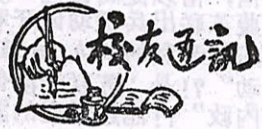 校友通訊